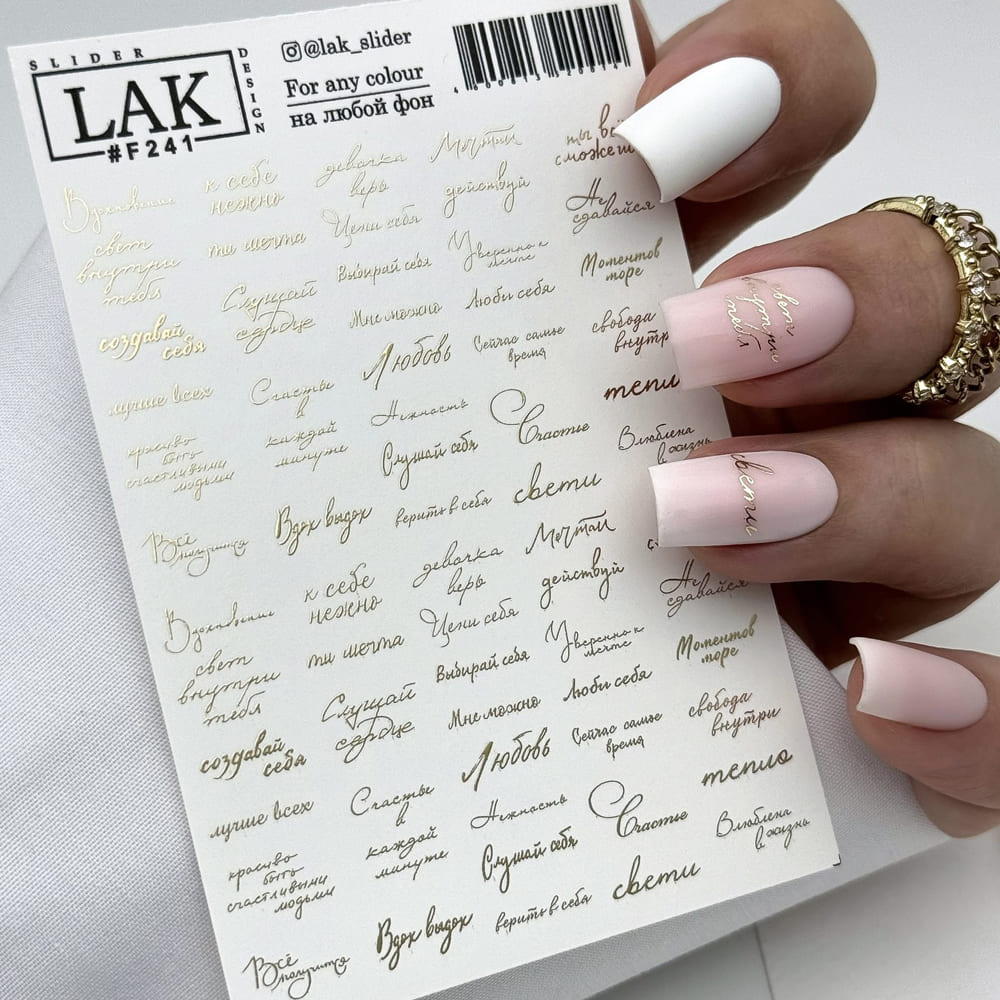 SLIDER
DESIGN
LAK
#F241
@lak_slider
For any colour
на любой фон
Вдохновение
к себе
нежно
девочка
верь
Мечтай
действуй
ты всё
сможешь
Не
сдавайся
свет
внутри
тебя
ты мечта
Цени себя
Выбирай себя
Уверенно к
мечте
Моментов
море
создавай
себя
Слушай
сердце
Мне можно
Люби себя
свобода
внутри
лучше всех
Счастье
в
каждой
минуте
Любовь
Сейчас самое
время
Нежность
Счастье
тепло
красиво
быть
счастливыми
людьми
Слушай себя
Влюблена
в жизнь
Всё
получится
Вдох выдох
верить в себя
свети
Вдохновение
к себе
нежно
девочка
верь
Мечтай
действуй
Не
сдавайся
свет
внутри
тебя
ты мечта
Цени себя
Выбирай себя
Уверенно к
мечте
Моментов
море
создавай
себя
Слушай
сердце
Мне можно
Люби себя
свобода
внутри
лучше всех
Счастье
в
каждой
минуте
Любовь
Сейчас самое
время
Нежность
Счастье
тепло
красиво
быть
счастливыми
людьми
Слушай себя
Влюблена
в жизнь
Всё
получится
Вдох выдох
верить в себя
свети
свет
внутри
тебя
свети